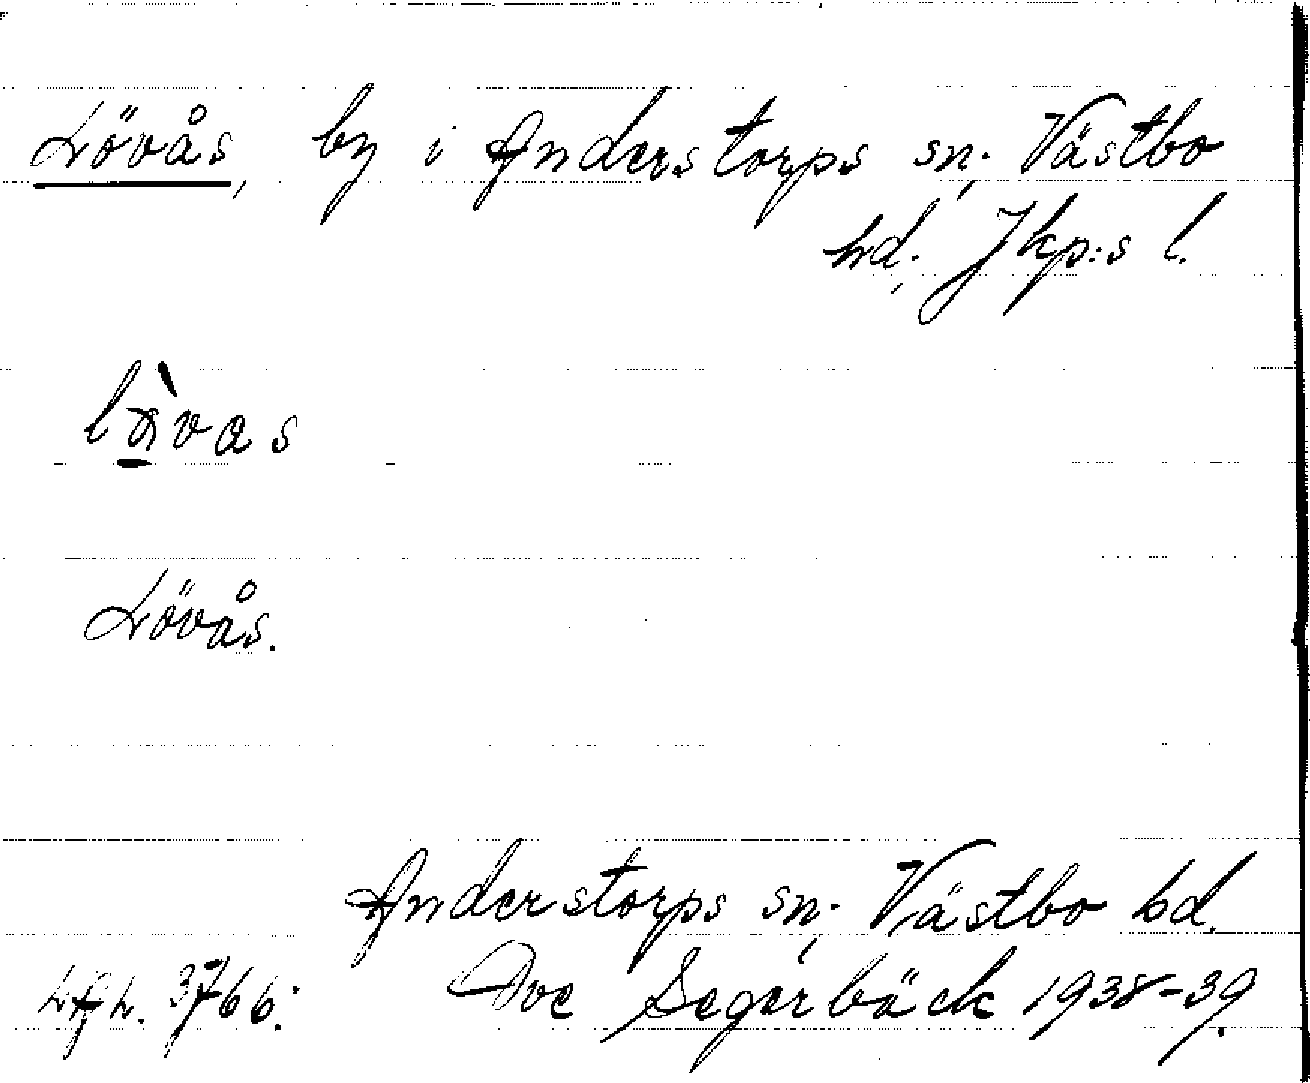 Lövås, by i Anderstorps sn. Västbo
hd. Jkp:s l.
làvas
Lövås.
Anderstorps sn. Västbo hd.
3766: Ove Segerbäck 1938-39